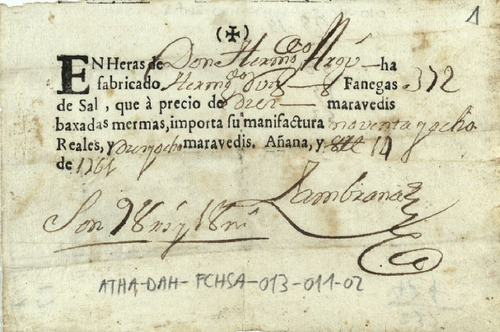 (✠)
1
EN Heras de Don Hermo Urqu ha
fabricado Hermdo Ruiz Fanegas 372
de Sal, que à precio de Diez maravedis
baxadas mermas, importa su manifactura noventa y ocho
Reales, y Diez y ocho maravedis. Añana, y 14
de 1761
Zambrana
Son 98 rs y 18 ms
ATHA-DAH-FCHSA-013-011-02